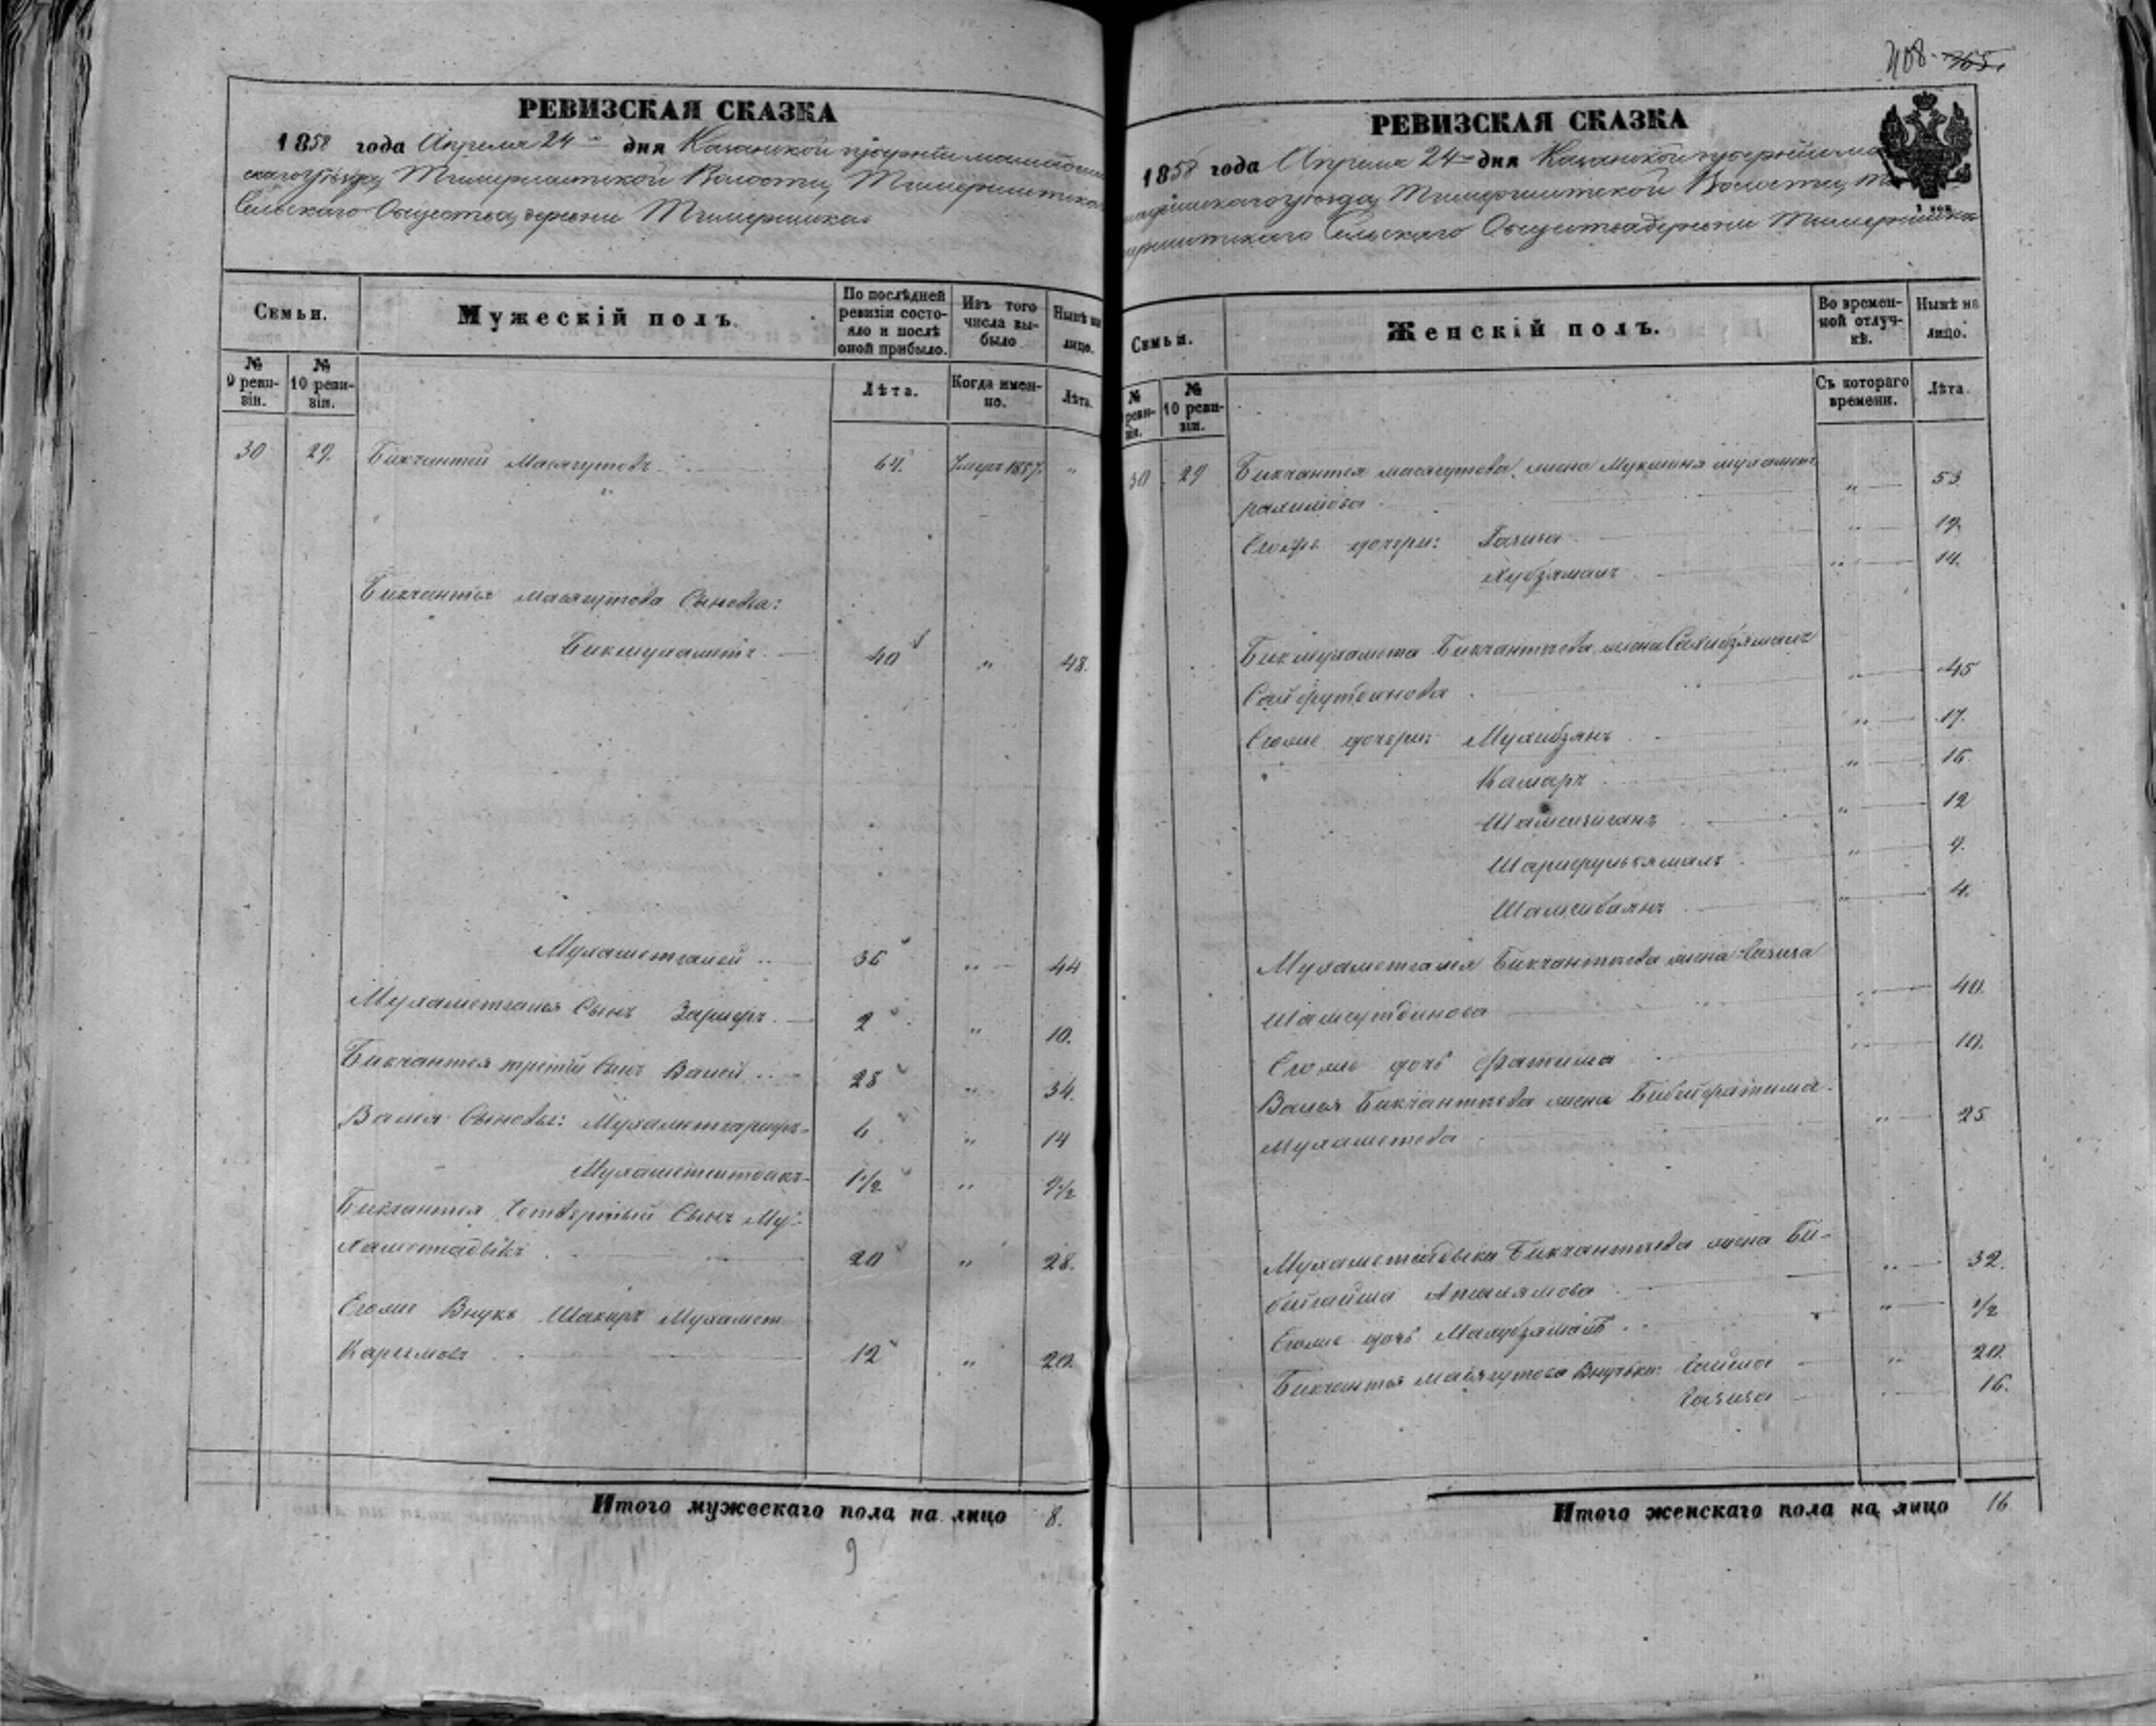 РЕВИЗСКАЯ СКАЗКА
1858 года Апреля 24 дня Казанской губерніи мамадыш
скаго уѣзда, Тимершитской Волости, Тимершитска
Сельскаго Общества, деревни Тимершика
Семьи.
Мужескій полъ.
По послѣдней ревизіи состояло и послѣ оной прибыло.
Изъ того числа выбыло
Нынѣ на лицо.
№ 9 ревизіи.
№ 10 ревизіи.
Лѣта.
Когда именно.
Лѣта.
30 29. Бикчантей Масягутовъ 64. Умеръ 1857. "
Бикчантея масягутова Сыновья:
Бикмухаметъ. 40 " 48.
Мухаметгалей 36 " 44
Мухаметгалея Сынъ Зарифъ. 2 " 10.
Бикчантея третій Сынъ Валей 28 " 34.
Валея Сыновья: Мухаметгарифъ 6 " 14
Мухаметситдикъ 1 1/2 " 9 1/2
Бикчантея Четвертый Сынъ Му-
хаметсадыкъ 20 " 28.
Егоже Внукъ Шакиръ Мухамет
Каримовъ 12 " 20.
Итого мужескаго пола на лицо 8.
9
408. 765.
РЕВИЗСКАЯ СКАЗКА
1858 года Апреля 24 дня Казанской губерніи ма
мадышскаго уѣзда, Тимершитской Волости, Ти
мершитскаго Сельскаго Общества деревни Тимершика
Семьи.
Женскій полъ.
Во временной отлучкѣ.
Нынѣ на лицо.
№ ревизіи.
№ 10 ревизіи.
Съ котораго времени.
Лѣта.
30 29 Бикчантея масягутова, жена Мукминя мухамет
рахимова " 53
Егоже дочери: Газиза " 19.
Хубзямалъ " 14.
Бикмухамета Бикчантеева жена Сахибзямалъ
Сайфутдинова " 45
Егоже дочери: Мухибзянъ " 17.
Камаръ " 16.
Шамсизиганъ " 12
Шарифулькямалъ " 9.
Шамсибаянъ " 4.
Мухаметгалея Бикчантеева жена Газиза
Шамсутдинова " 40.
Егоже дочь Фатима " 10.
Валея Бикчантеева жена Бибифатима
Мухаметева " 25
Мухаметсадыка Бикчантеева жена Би-
бигайша " 32.
Егоже дочь Махубзямалъ " 1/2
Бикчантея масягутова Внучьки: Гайша " 20.
Газиза " 16.
Итого женскаго пола на лицо 16